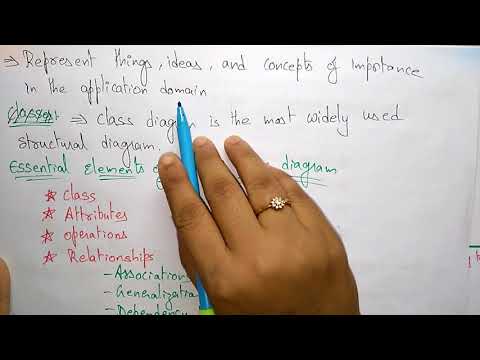 ⇒ Represent things, ideas, and concepts of importance
in the application domain
⇒ Class diagram is the most widely used
structural diagram.
Essential Elements diagram
☆ class
☆ Attributes
☆ operations
☆ Relationships
- Associations
- Generalizatio
- Dependency